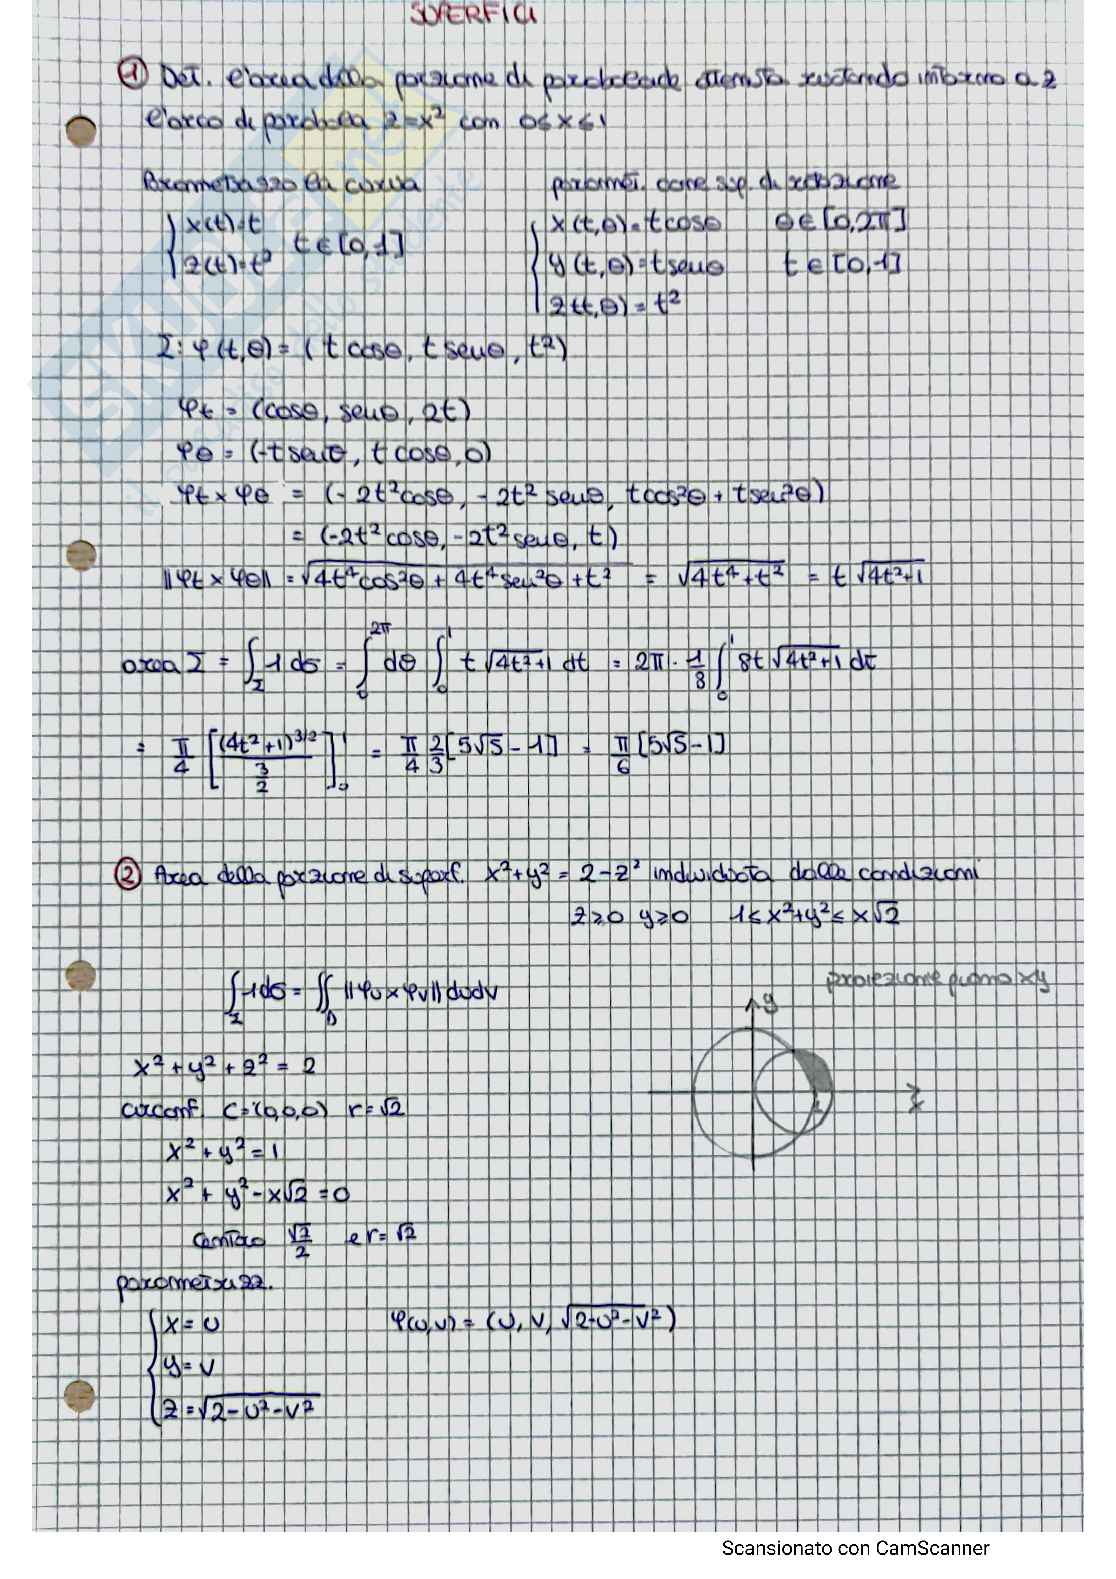 SUPERFICI
① Det. l'area della porzione di paraboloide ottenuta ruotando intorno a z
l'arco di parabola z=x² con 0≤x≤1
Parametrizzo la curva
paramet. come sup. di rotazione
{ x(t)=t
z(t)=t²
t∈[0,1]
{ x(t,θ)=tcosθ θ∈[0,2π]
y(t,θ)=tsenθ t∈[0,1]
z(t,θ)=t²
Σ: φ(t,θ)=(t cosθ, t senθ, t²)
φt = (cosθ, senθ, 2t)
φθ = (-tsenθ, t cosθ, 0)
φt × φθ = (-2t²cosθ, -2t² senθ, tcos²θ + tsen²θ)
= (-2t² cosθ, -2t² senθ, t)
||φt × φθ|| = √(4t⁴cos²θ + 4t⁴sen²θ + t²) = √(4t⁴+t²) = t √(4t²+1)
area Σ = ∫_Σ 1 dσ = ∫_0^{2π} dθ ∫_0^1 t √(4t²+1) dt = 2π · 1/8 ∫_0^1 8t √(4t²+1) dt
= π/4 [(4t²+1)^{3/2} / (3/2)]_0^1 = π/4 2/3 [5√5 - 1] = π/6 [5√5-1]
② Area della porzione di superf. x²+y² = 2-z² individuata dalle condizioni
z≥0 y≥0 1≤x²+y²≤x√2
proiezione piano xy
∫_Σ 1dσ = ∬_D ||φu × φv|| dudv
y
x² + y² + z² = 2
circonf. C=(0,0,0) r=√2
x² + y² = 1
x² + y² - x√2 = 0
centro √2/2 e r=√2
parametrizz.
{ x = u
φ(u,v) = (u, v, √(2-u²-v²))
y = v
z = √(2-u²-v²)
Scansionato con CamScanner